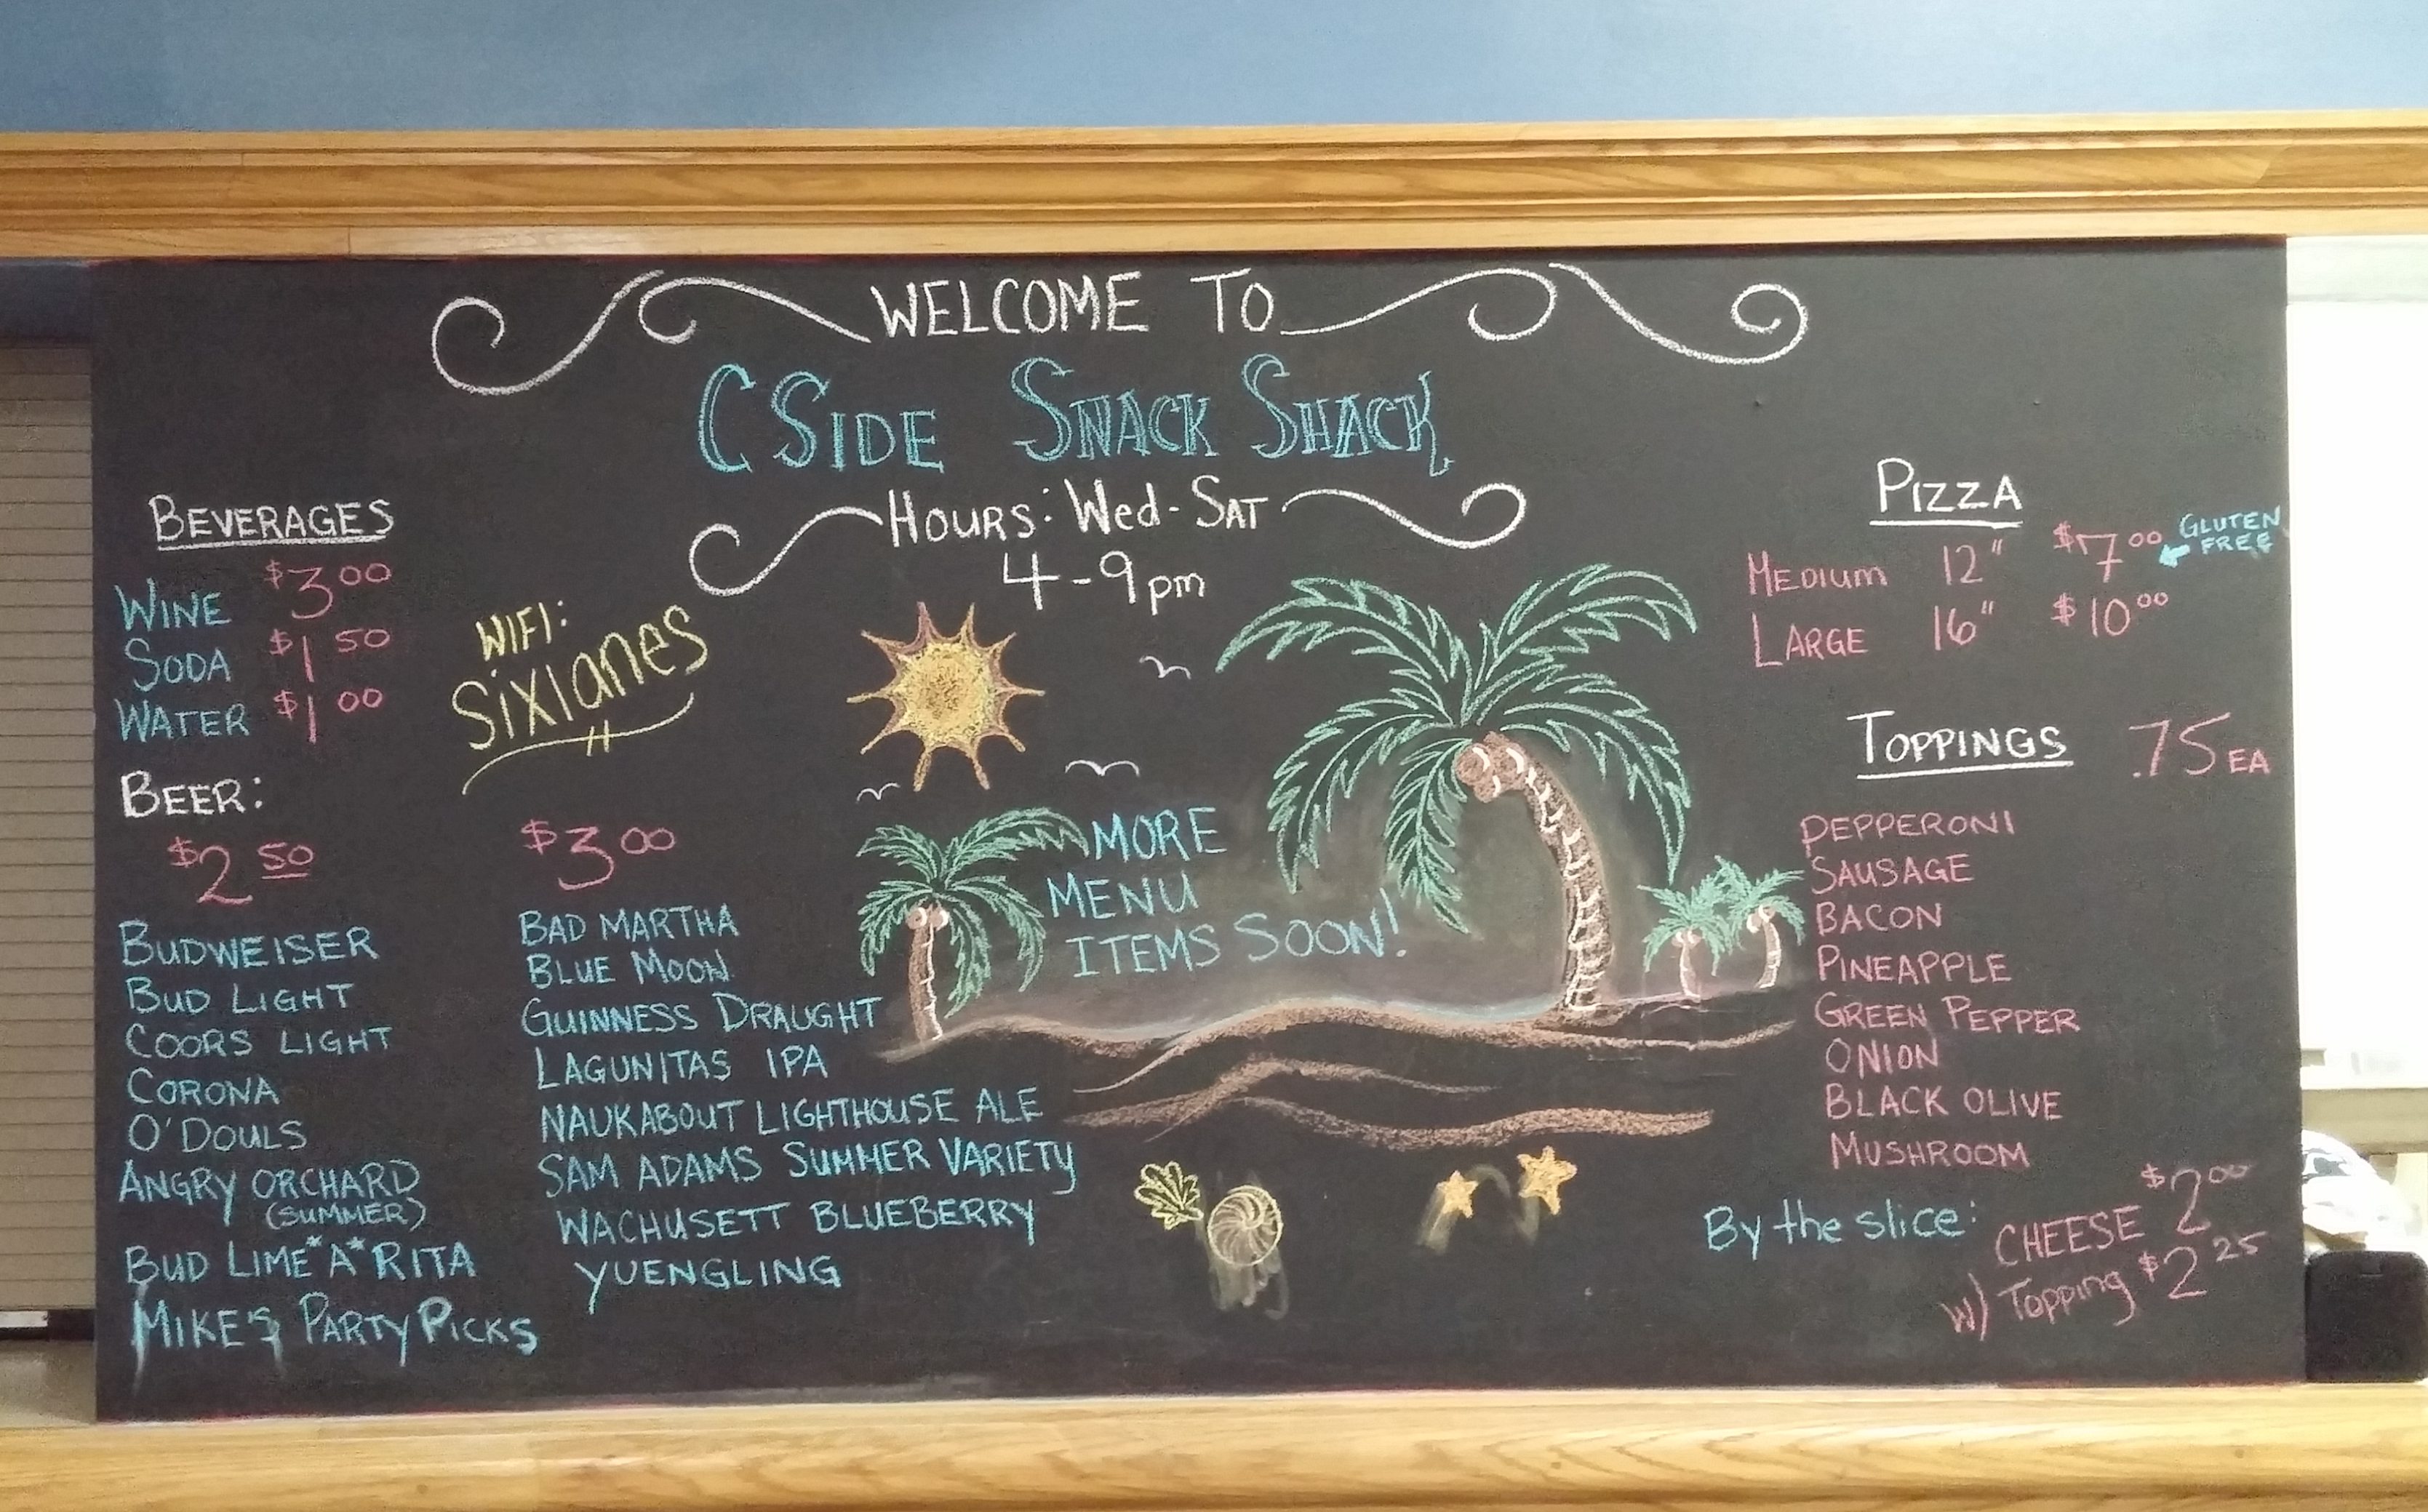 WELCOME TO
CSIDE SNACK SHACK
HOURS: Wed - SAT
4-9pm
BEVERAGES
WINE $3.00
SODA $1.50
WATER $1.00
WIFI:
Sixlanes
BEER:
$2.50
BUDWEISER
BUD LIGHT
COORS LIGHT
CORONA
O'DOULS
ANGRY ORCHARD
(SUMMER)
BUD LIME*A*RITA
MIKE'S PARTY PICKS
$3.00
BAD MARTHA
BLUE MOON
GUINNESS DRAUGHT
LAGUNITAS IPA
NAUKABOUT LIGHTHOUSE ALE
SAM ADAMS SUMMER VARIETY
WACHUSETT BLUEBERRY
YUENGLING
MORE
MENU
ITEMS SOON!
PIZZA
MEDIUM 12" $7.00 GLUTEN FREE
LARGE 16" $10.00
TOPPINGS .75 EA
PEPPERONI
SAUSAGE
BACON
PINEAPPLE
GREEN PEPPER
ONION
BLACK OLIVE
MUSHROOM
By the slice: CHEESE $2.00
W/ Topping $2.25